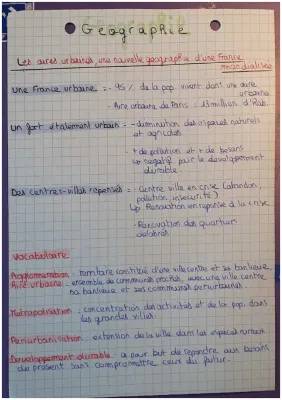 Géographie
Les aires urbaines, une nouvelle géographie d'une France
mondialisée
Une France urbaine = - 95% de la pop. vivent dans une aire
urbaine
- Aire urbaine de Paris : 13 million d'hab.
Un fort étalement urbain = - diminution des espaces naturels
et agricoles
- + de pollution et + de besoins
négatif pour le développement
durable
Des centres-villes repensés = - Centre ville en crise (abandon,
pollution, insécurité)
Rénovation en réponse à la crise
- Rénovation des quartiers
délabrés
Vocabulaire
Agglomération - territoire constitué d'une ville centre et sa banlieue
Aire urbaine - ensemble de communes proches, avec une ville centre
sa banlieue et ses communes périurbaines
Métropolisation - concentration des activités et de la pop. dans
les grandes villes
Périurbanisation - extension de la ville dans les espaces ruraux
Développement durable - a pour but de répondre aux besoins
du présent sans compromettre ceux du futur.